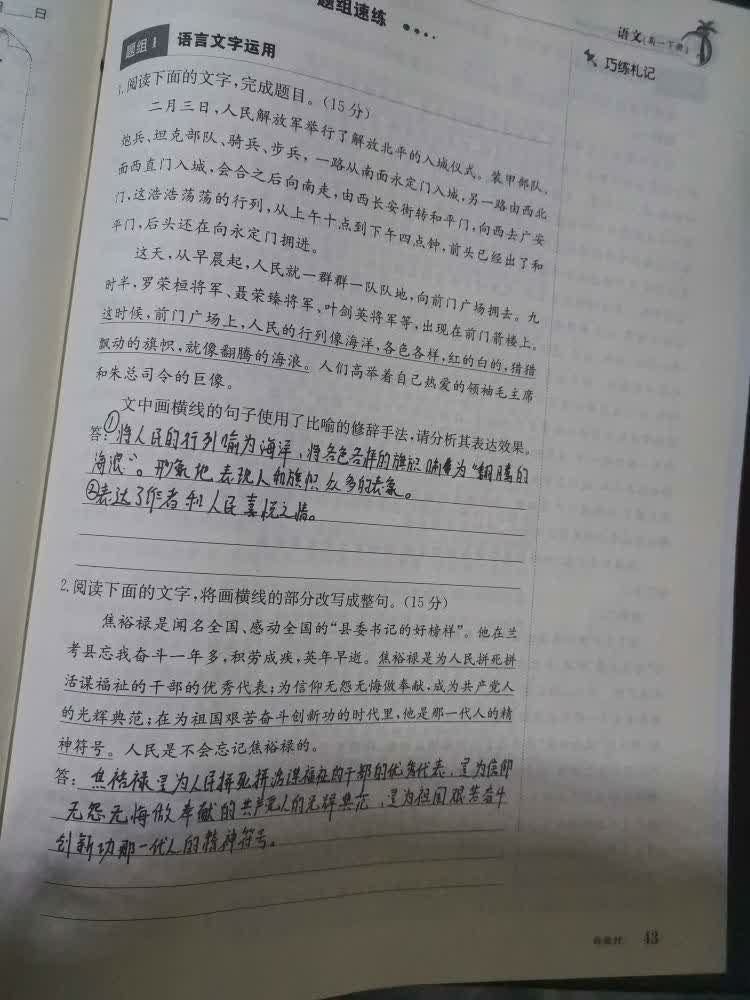 日
题组速练
语文(高一下册)
巧练札记
题组1 语言文字运用
1.阅读下面的文字,完成题目。(15分)
二月三日,人民解放军举行了解放北平的入城仪式。装甲部队、
炮兵、坦克部队、骑兵、步兵,一路从南面永定门入城,另一路由西北
面西直门入城,会合之后向南走,由西长安街转和平门,向西去广安
门,这浩浩荡荡的行列,从上午十点到下午四点钟,前头已经出了和
平门,后头还在向永定门拥进。
这天,从早晨起,人民就一群群一队队地,向前门广场拥去。九
时半,罗荣桓将军、聂荣臻将军、叶剑英将军等,出现在前门箭楼上。
这时候,前门广场上,人民的行列像海洋,各色各样,红的白的,猎猎
飘动的旗帜,就像翻腾的海浪。人们高举着自己热爱的领袖毛主席
和朱总司令的巨像。
文中画横线的句子使用了比喻的修辞手法,请分析其表达效果。
答:①将人民的行列喻为海洋,将各色各样的旗帜喻为“翻腾的
海浪”。形象地表现人和旗帜众多的表象。
②表达了作者和人民喜悦之情。
2.阅读下面的文字,将画横线的部分改写成整句。(15分)
焦裕禄是闻名全国、感动全国的“县委书记的好榜样”。他在兰
考县忘我奋斗一年多,积劳成疾,英年早逝。焦裕禄是为人民拼死拼
活谋福祉的干部的优秀代表;为信仰无怨无悔做奉献,成为共产党人
的光辉典范;在为祖国艰苦奋斗创新功的时代里,他是那一代人的精
神符号。人民是不会忘记焦裕禄的。
答:焦裕禄是为人民拼死拼活谋福祉的干部的优秀代表,是为信仰
无怨无悔做奉献的共产党人的光辉典范,是为祖国艰苦奋斗
创新功那一代人的精神符号。
43